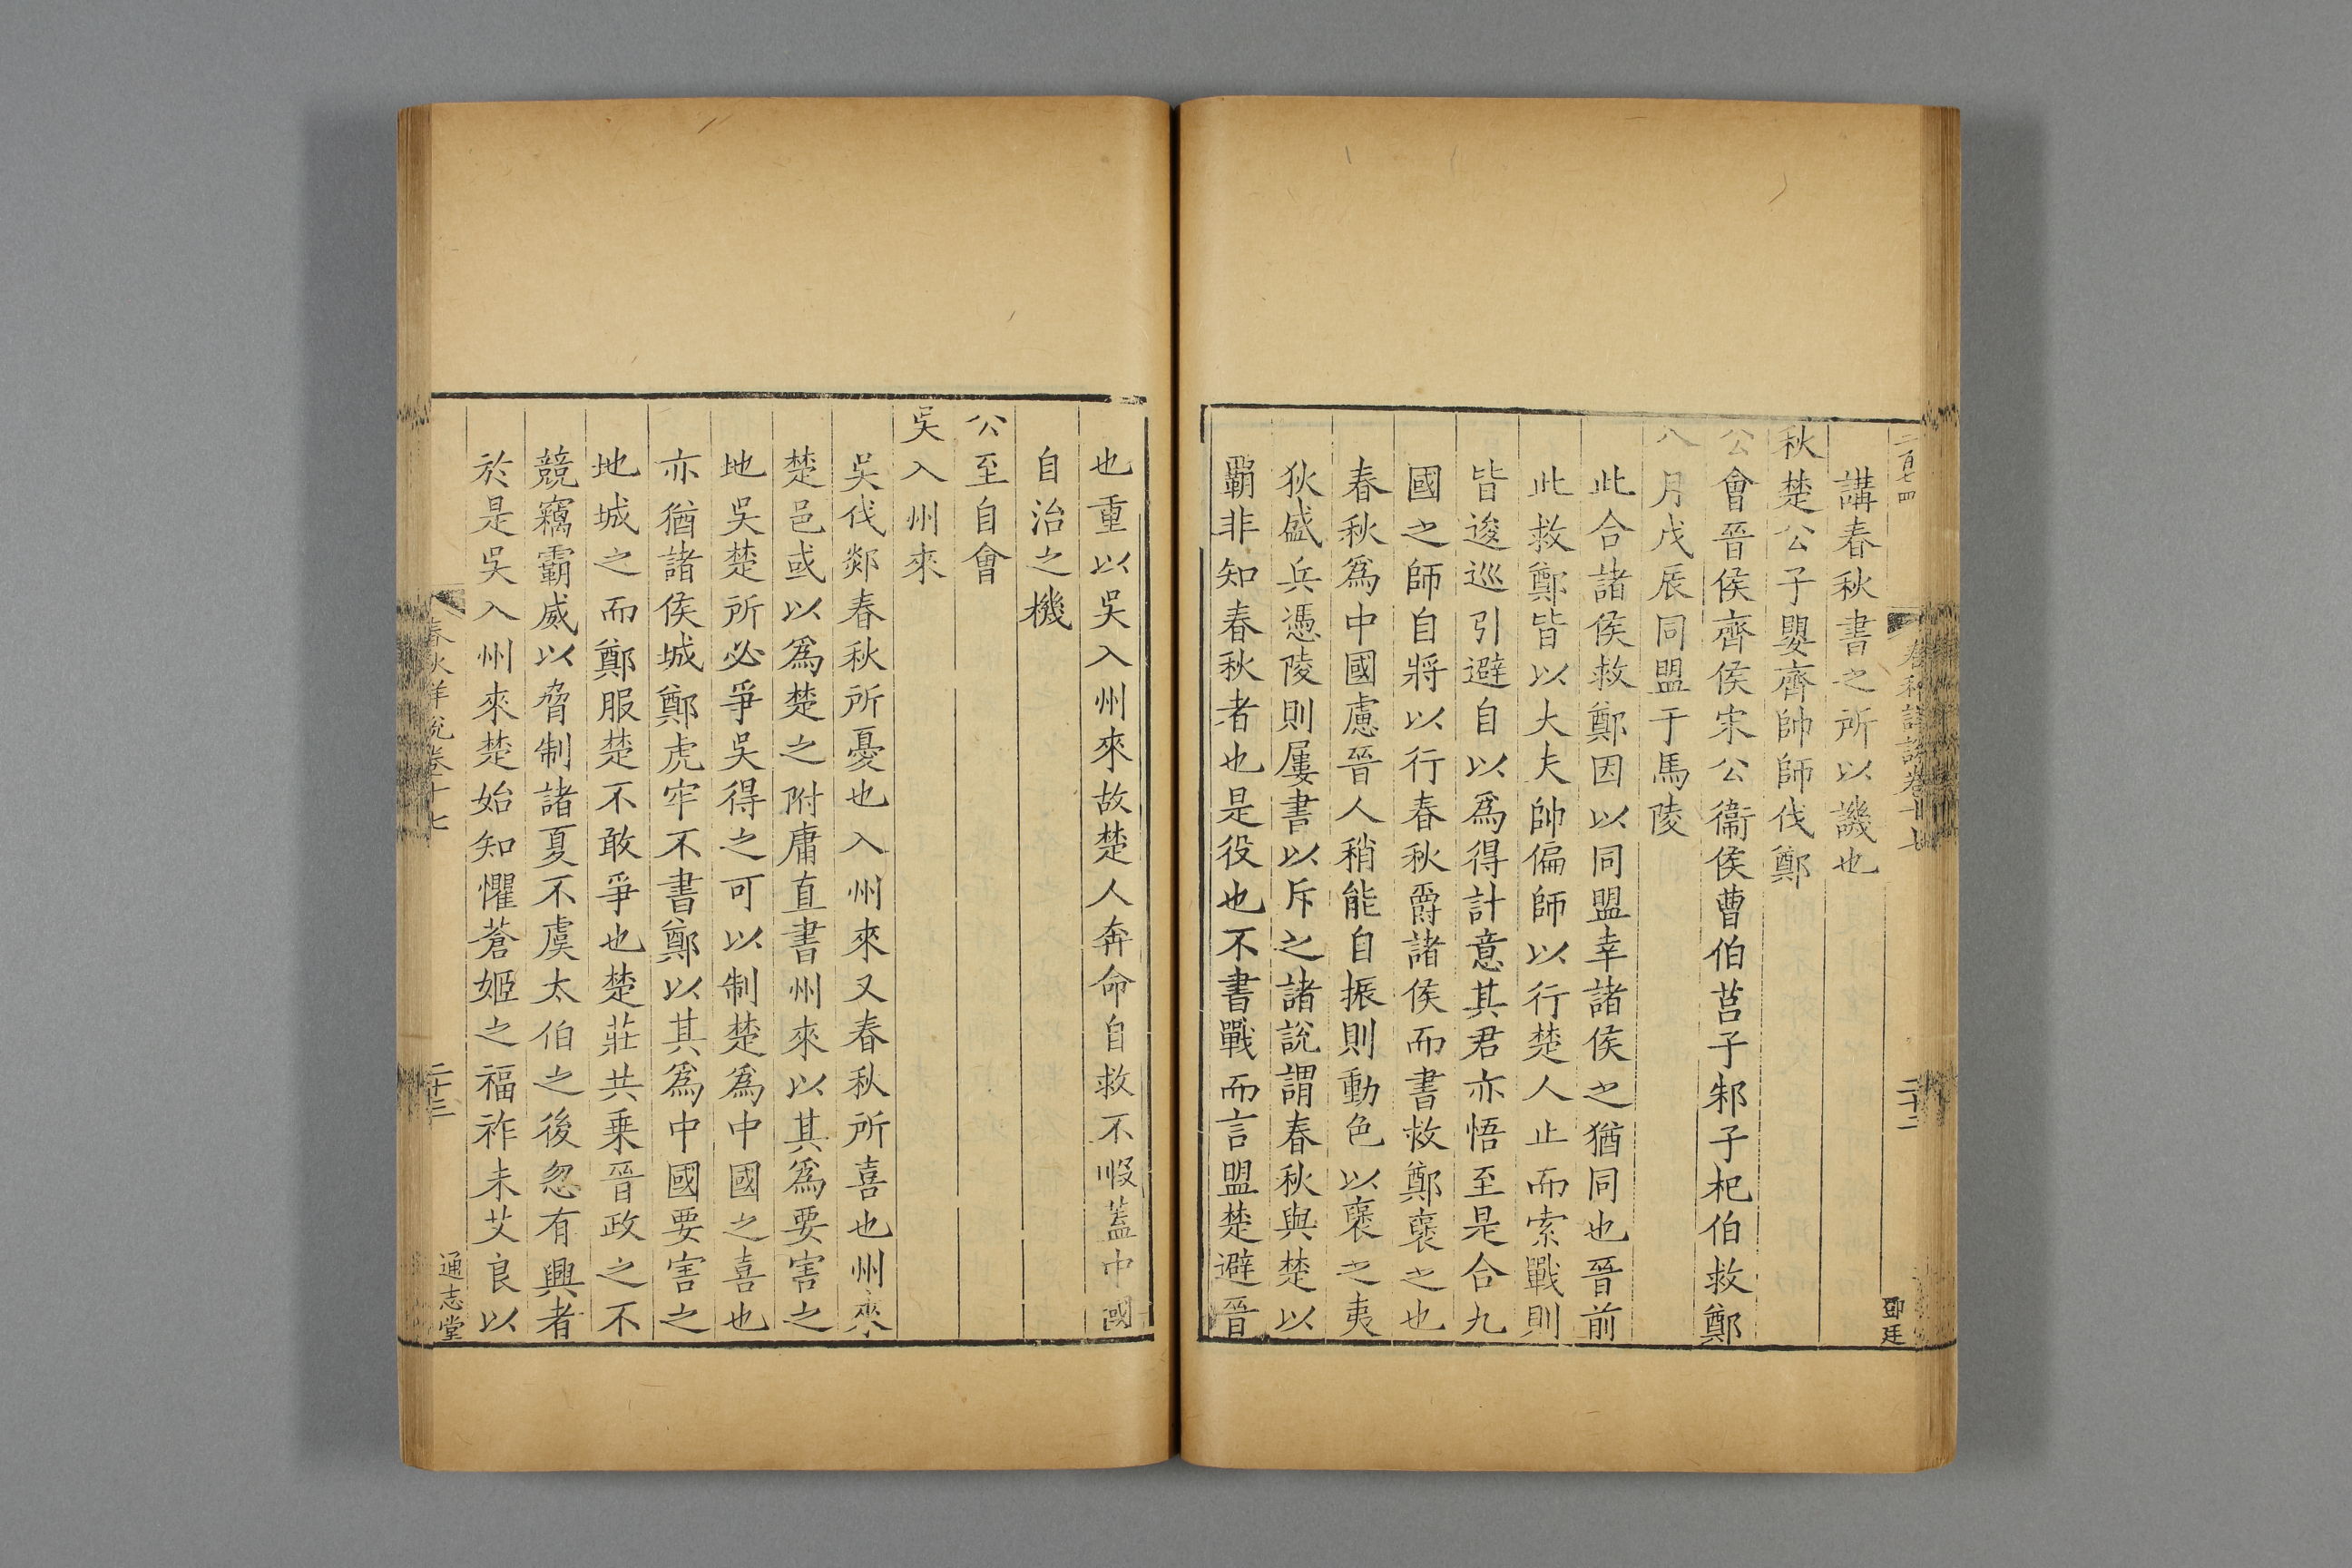 二百七四
春秋詳說卷十七
二十二
邵廷
講春秋書之所以譏也
秋楚公子嬰齊帥師伐鄭
公會晉侯齊侯宋公衞侯曹伯莒子邾子杞伯救鄭
八月戊辰同盟于馬陵
此合諸侯救鄭因以同盟幸諸侯之猶同也晉前
此救鄭皆以大夫帥偏師以行楚人止而索戰則
皆逡巡引避自以爲得計意其君亦悟至是合九
國之師自將以行春秋爵諸侯而書救鄭襃之也
春秋爲中國慮晉人稍能自振則動色以襃之夷
狄盛兵憑陵則屢書以斥之諸說謂春秋與楚以
霸非知春秋者也是役也不書戰而言盟楚避晉
也重以吳入州來故楚人奔命自救不暇蓋中國
自治之機
公至自會
吳入州來
吳伐郯春秋所憂也入州來又春秋所喜也州來
楚邑或以爲楚之附庸直書州來以其爲要害之
地吳楚所必爭吳得之可以制楚爲中國之喜也
亦猶諸侯城鄭虎牢不書鄭以其爲中國要害之
地城之而鄭服楚不敢爭也楚莊共乗晉政之不
競竊霸威以脅制諸夏不虞太伯之後忽有興者
於是吳入州來楚始知懼蒼姬之福祚未艾良以
春秋詳說卷十七
二十三
通志堂